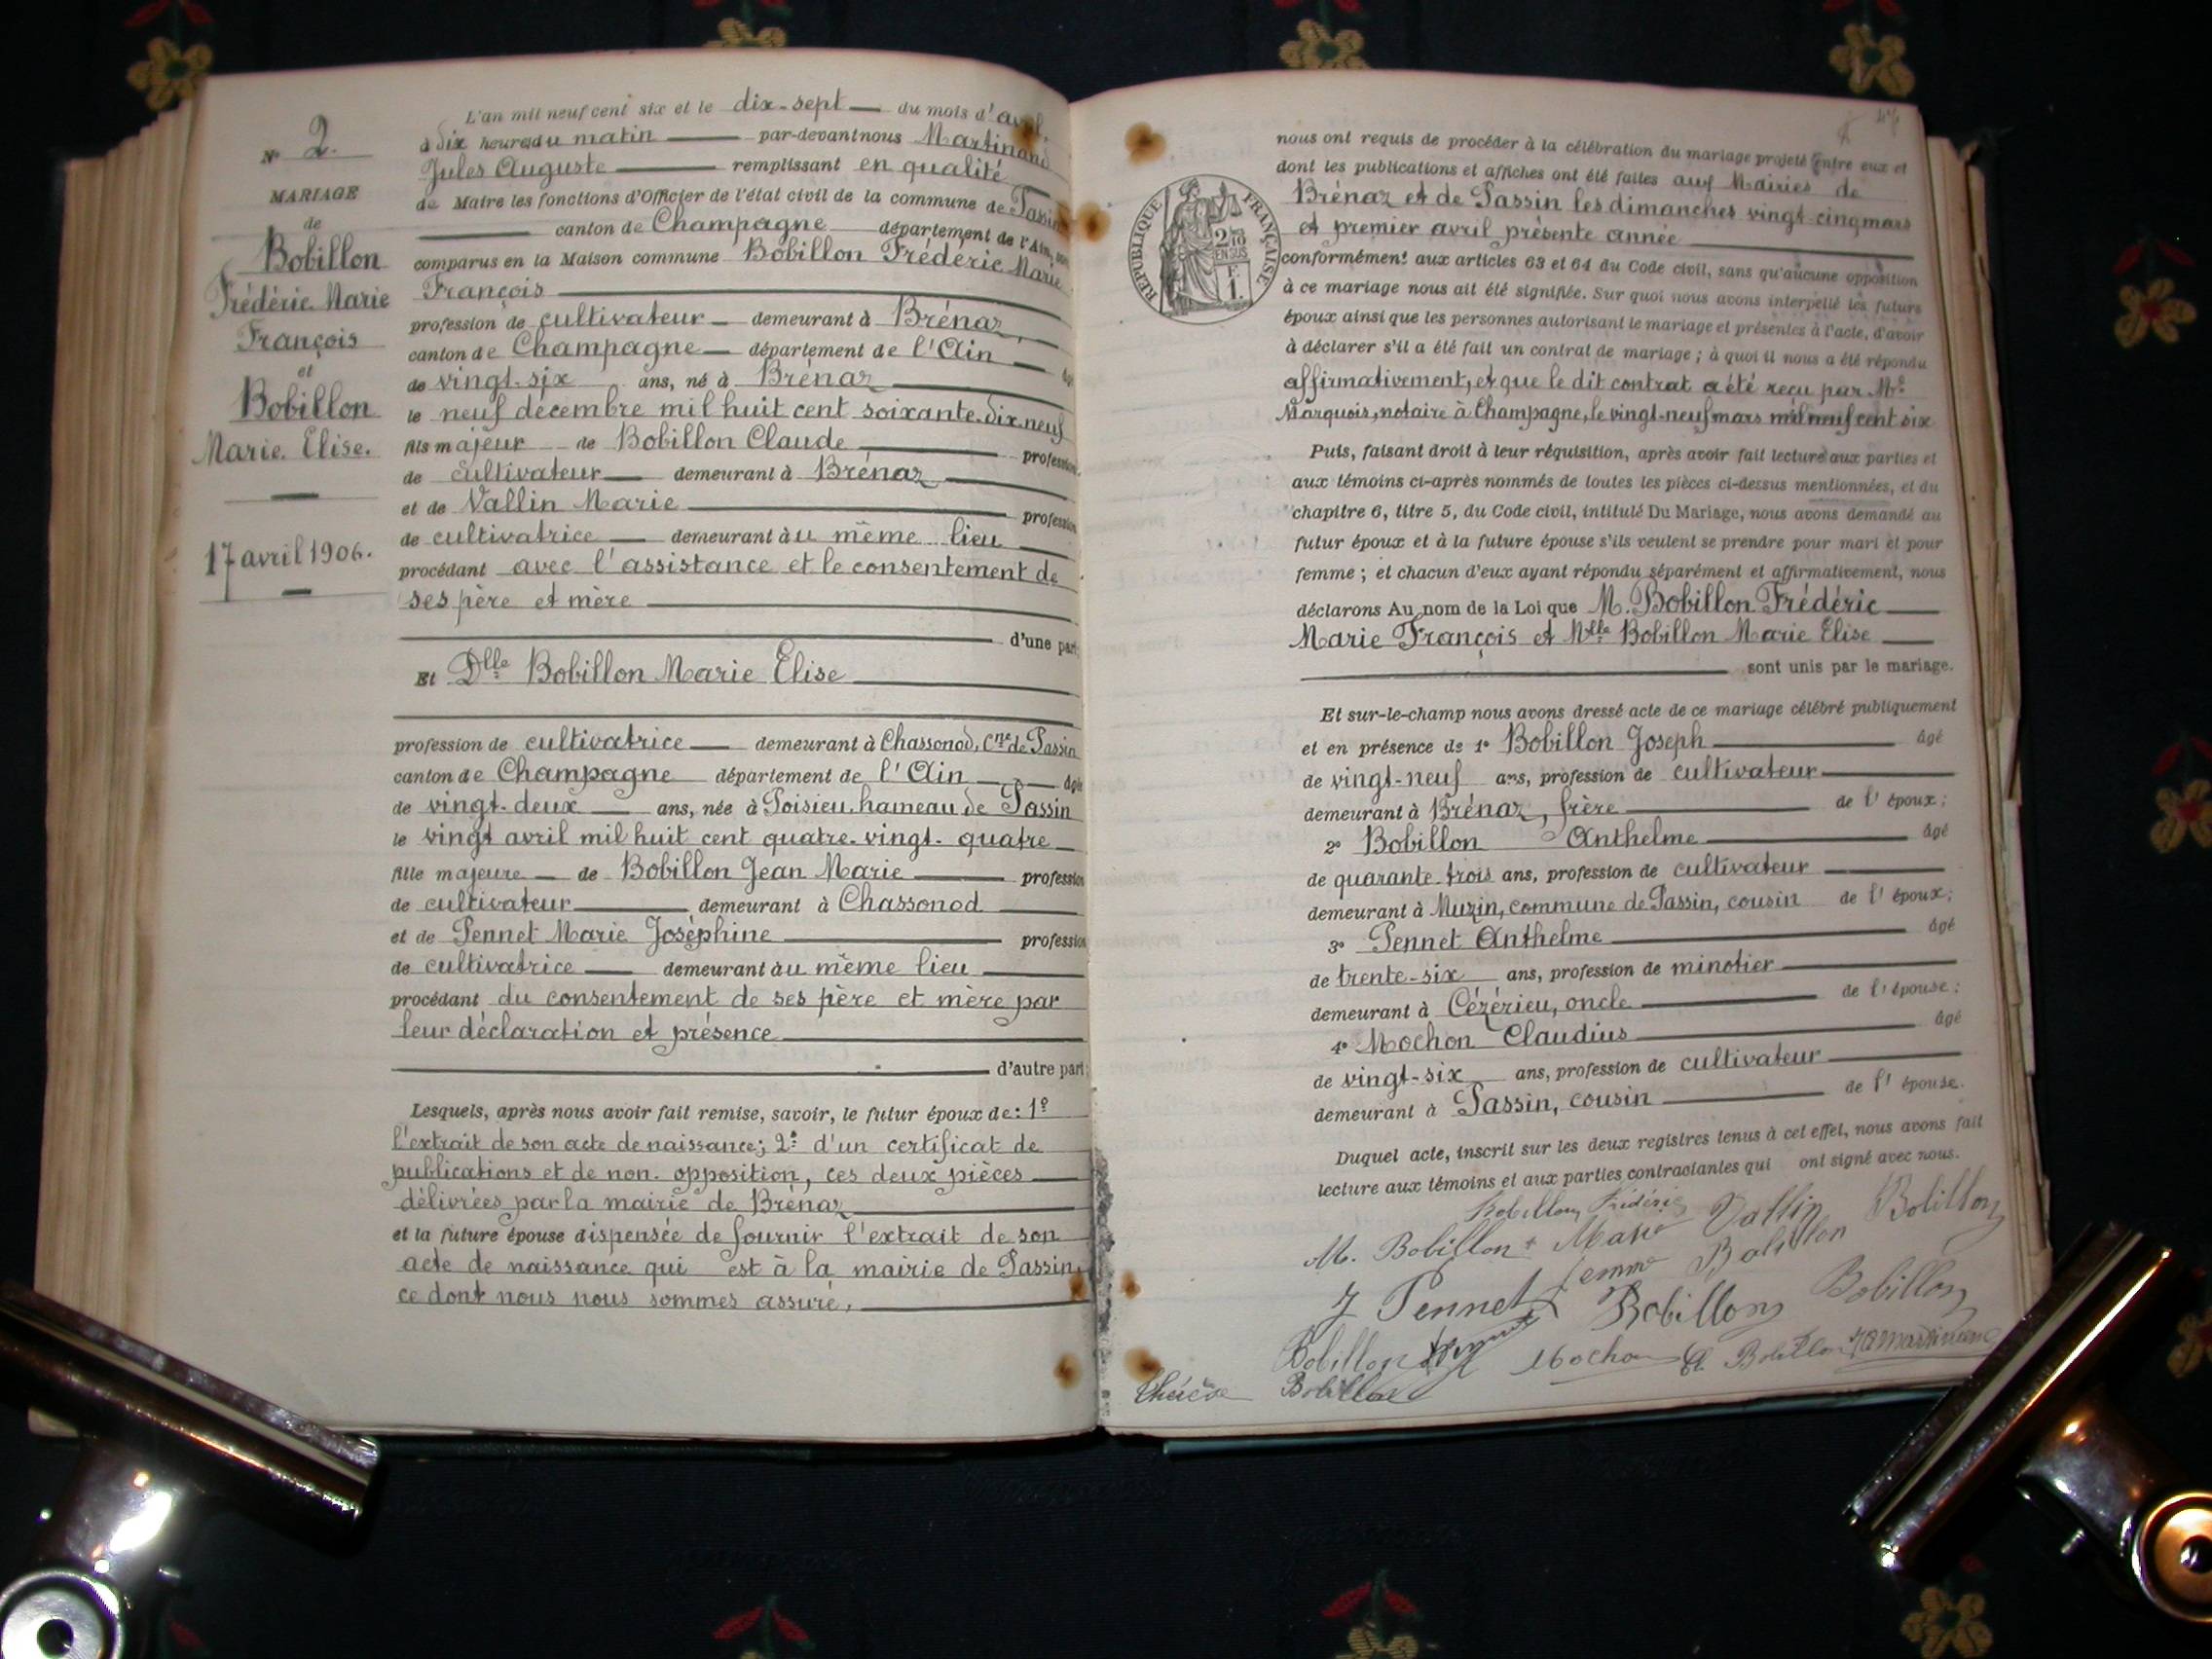 N° 2.
MARIAGE
de
Bobillon
Frédéric Marie
François
et
Bobillon
Marie Elise.
17 avril 1906.
L'an mil neuf cent six et le dix-sept du mois d'avril,
à dix heures du matin par-devant nous Martinand
Jules Auguste remplissant en qualité
de Maire les fonctions d'Officier de l'état civil de la commune de Passin
canton de Champagne département de l'Ain, sont
comparus en la Maison commune Bobillon Fréderic Marie
François
profession de cultivateur demeurant à Brénaz,
canton de Champagne département de l'Ain âgé
de vingt-six ans, né à Brénaz
le neuf décembre mil huit cent soixante-dix-neuf
fils majeur de Bobillon Claude profession
de cultivateur demeurant à Brénaz
et de Vallin Marie profession
de cultivatrice demeurant au même lieu
procédant avec l'assistance et le consentement de
ses père et mère
d'une part;
Et Dlle Bobillon Marie Elise
profession de cultivatrice demeurant à Chassonod, Cne de Passin
canton de Champagne département de l'Ain âgée
de vingt-deux ans, née à Poisieu, hameau de Passin
le vingt avril mil huit cent quatre-vingt-quatre
fille majeure de Bobillon Jean Marie profession
de cultivateur demeurant à Chassonod
et de Pennet Marie Joséphine profession
de cultivatrice demeurant au même lieu
procédant du consentement de ses père et mère par
leur déclaration et présence
d'autre part;
Lesquels, après nous avoir fait remise, savoir, le futur époux de: 1°
l'extrait de son acte de naissance; 2° d'un certificat de
publications et de non-opposition, ces deux pièces
délivrées par la mairie de Brénaz
et la future épouse dispensée de fournir l'extrait de son
acte de naissance qui est à la mairie de Passin,
ce dont nous nous sommes assuré,
nous ont requis de procéder à la célébration du mariage projeté entre eux et
dont les publications et affiches ont été faites aux Mairies de
Brénaz et de Passin les dimanches vingt-cinq mars
et premier avril présente année
conformément aux articles 63 et 64 du Code civil, sans qu'aucune opposition
à ce mariage nous ait été signifiée. Sur quoi nous avons interpellé les futurs
époux ainsi que les personnes autorisant le mariage et présentes à l'acte, d'avoir
à déclarer s'il a été fait un contrat de mariage; à quoi il nous a été répondu
affirmativement, et que le dit contrat a été reçu par Me
Marquois, notaire à Champagne, le vingt-neuf mars mil neuf cent six
Puis, faisant droit à leur réquisition, après avoir fait lecture aux parties et
aux témoins ci-après nommés de toutes les pièces ci-dessus mentionnées, et du
chapitre 6, titre 5, du Code civil, intitulé Du Mariage, nous avons demandé au
futur époux et à la future épouse s'ils veulent se prendre pour mari et pour
femme; et chacun d'eux ayant répondu séparément et affirmativement, nous
déclarons Au nom de la Loi que M. Bobillon Frédéric
Marie François et Mlle Bobillon Marie Elise
sont unis par le mariage.
Et sur-le-champ nous avons dressé acte de ce mariage célébré publiquement
et en présence de 1° Bobillon Joseph âgé
de vingt-neuf ans, profession de cultivateur
demeurant à Brénaz, frère de l'époux;
2° Bobillon Anthelme âgé
de quarante-trois ans, profession de cultivateur
demeurant à Muzin, commune de Passin, cousin de l'époux;
3° Pennet Anthelme âgé
de trente-six ans, profession de minotier
demeurant à Cézérieu, oncle de l'épouse;
4° Mochon Claudius âgé
de vingt-six ans, profession de cultivateur
demeurant à Passin, cousin de l'épouse.
Duquel acte, inscrit sur les deux registres tenus à cet effet, nous avons fait
lecture aux témoins et aux parties contractantes qui ont signé avec nous.
Bobillon Frédéric
M. Bobillon Marie Vallin Bobillon
femme Bobillon
J Pennet Bobillon Bobillon
Bobillon Mochon Bobillon JAMartinand
Thérèse Bobillon
RÉPUBLIQUE FRANÇAISE
2/10
EN SUS
1 F.